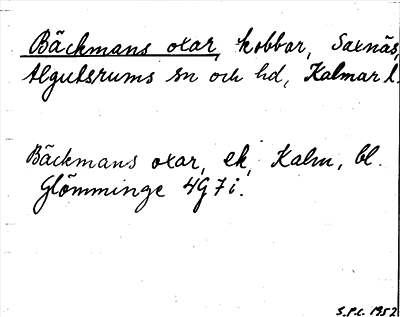 Bäckmans oxar, kobbar, Saxnäs,
Algutsrums sn och hd, Kalmar l.
Bäckmans oxar, ek, Kalm, bl.
Glömminge 4G7i.
S.P.L. 1952